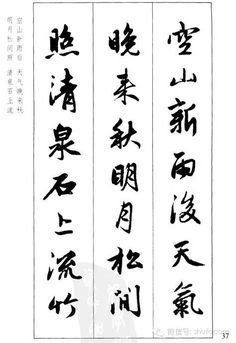 空山新雨後天氣
晚来秋明月松间
照清泉石上流竹
空山新雨后 天气晚来秋
明月松间照 清泉石上流
37